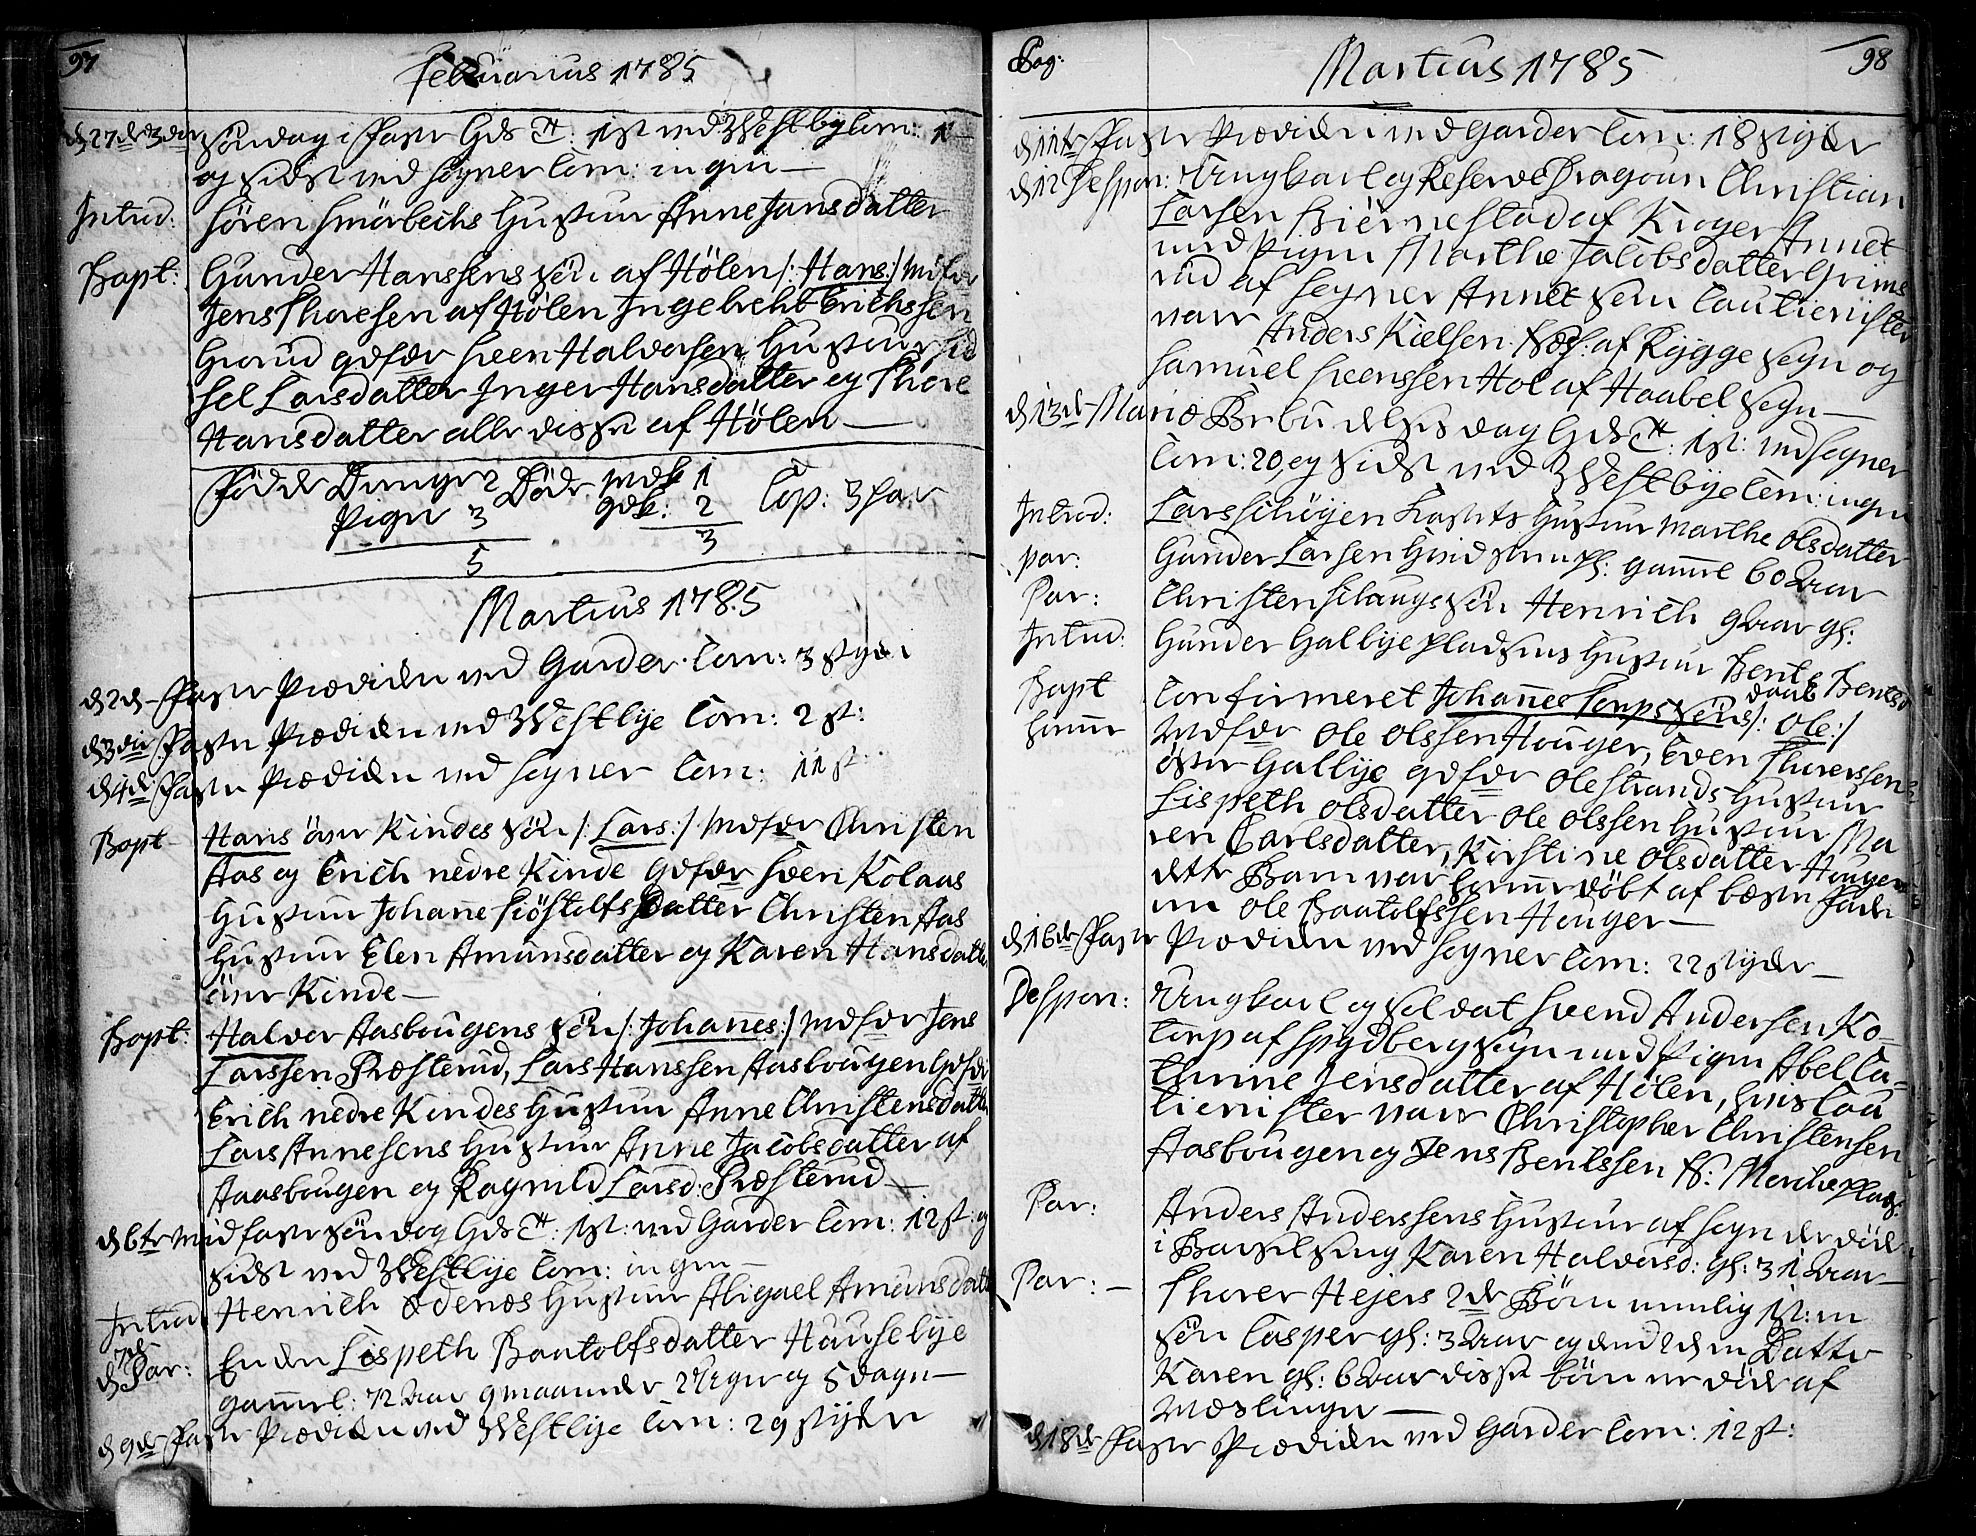 97
Februarius 1785
d 27de 3die Søndag i Faste holdt Tien: 1st ved Westby Com: 1
og sidst ved Sogner Com: ingen —
Introd: Sören Smörbechs Hustrue Anne Jansdatter
Bapt: Gunder Hanssens Sön af Hölen /: Hans :/ Mdfdr
Jens Thoresen af Hölen Ingebreht Erichssen
qvfdr Sven Halvorsen Hustrue Sid
sel Larsdatter Inger Hansdatter og Thore
Hansdatter alle disse af Hölen —
Födde Drenger 2 Döde mdk 1 Cop: 3 par
Piger 3 qdk: 2
5 3
Martius 1785
d 2de Faste Prædiken ved Garder Com: 3 stykr
d 3die Faste Prædiken ved Westbye Com: 2 st:
d 4de Faste Prædiken ved Sogner Com: 11 st:
Bapt Hans övre Kindes Sön /: Lars :/ Mdfdr Christen
Aas og Erich nedre Kinde Qvfdr Sven Kolaas
Hustrue Johanne Siöstolfsdatter Christen Aas
Hustrue Elen Amunsdatter og Karen Hansdatter
övre Kinde —
Bapt: Halvor Aasbougens Sön /: Johannes :/ Mdfdr Jens
Larssen Præsterud, Lars Hanssen Aasbougen Qvfdr
Erich nedre Kindes Hustrue Anne Christensdatter
Lars Annesens Hustrue Anne Jacobsdatter af
Aasbougen og Ragnild Larsd: Præsterud —
d 6te Midfaste Söndag holdt Tien: 1st: ved Garder Com: 12 st: og
sidst ved Westbye Com: ingen —
Introd Henrich Ødenæs Hustrue Abigael Amunsdatt
d 7de Par: Enken Lispeth Bautolfsdatter Hauselbye
gammel: 72 Aar 9 maaneder 2 Uger og 5 dage —
d 9de Faste Prædiken ved Westbye Com: 29 stykker
Pag: Martius 1785 98
d 11te Faste Prædiken ved Garder Com: 18 stykker
d 12 Despon: Ungkarl og Reserve Dragoun Christian
Larsen Biörnestad af Kroger Annet
med Pigen Marthe Jacobsdatter Grims
rud af Sogner Annex som Cautionister
var Anders Kielsen af Rygge Sogn og
Samuel Svenssen Hol af Haabel Sogn —
d 13de Mariæ Bebudelses dag holdt Tien: 1st: ved Sogner
Com: 20, og sidst ved Westbye Com: ingen
Introd: Lars Schöyen Hustrue Marthe Olsdatter
par: Gunder Larsen gammel 60 Aar
Par: Christen Schaugs Sön Henrich 9 Aar gl:
Introd: Gunder Galbye pladsens Hustrue Berte Bentsd
Bapt Confirmeret Johannes Torps Söns /: Daab Ole :/
hjemme Mdfdr Ole Olssen Houger, Even Thorerssen
öster Galbye qvfdr Ole Strands Hustrue
Lispeth Olsdatter Ole Olssen Hustrue Ma
ren Carlsdatter, Kirstine Olsdatter Houger
dette Barn var hjemme döbt af beste Fade
ren Ole Bautolfssen Houger —
d 16de Faste Prædiken ved Sogner Com: 22 stykker —
Despon: Ungkarl og Soldat Svend Andersen Ko-
torp af Spydberg Sogn med Pigen Abel Ca-
thrine Jensdatter af Hölen, hvis Cau
tionister var Christopher Christensen
Aasbougen og Jens Bentssen
Par: Anders Anderssens Hustrue af Sogn der döde
i Barselseng Karen Halvorsd: gl: 31 Aar —
Par: — Thorer Hejers 2de Börn nemlig 1st: en
Sön Casper gl: 3 Aar og den 2den Datter
Karen gl: 6 Aar disse börn er död af
Mæslinger —
d 18de Faste Prædiken ved Garder Com: 12 st: